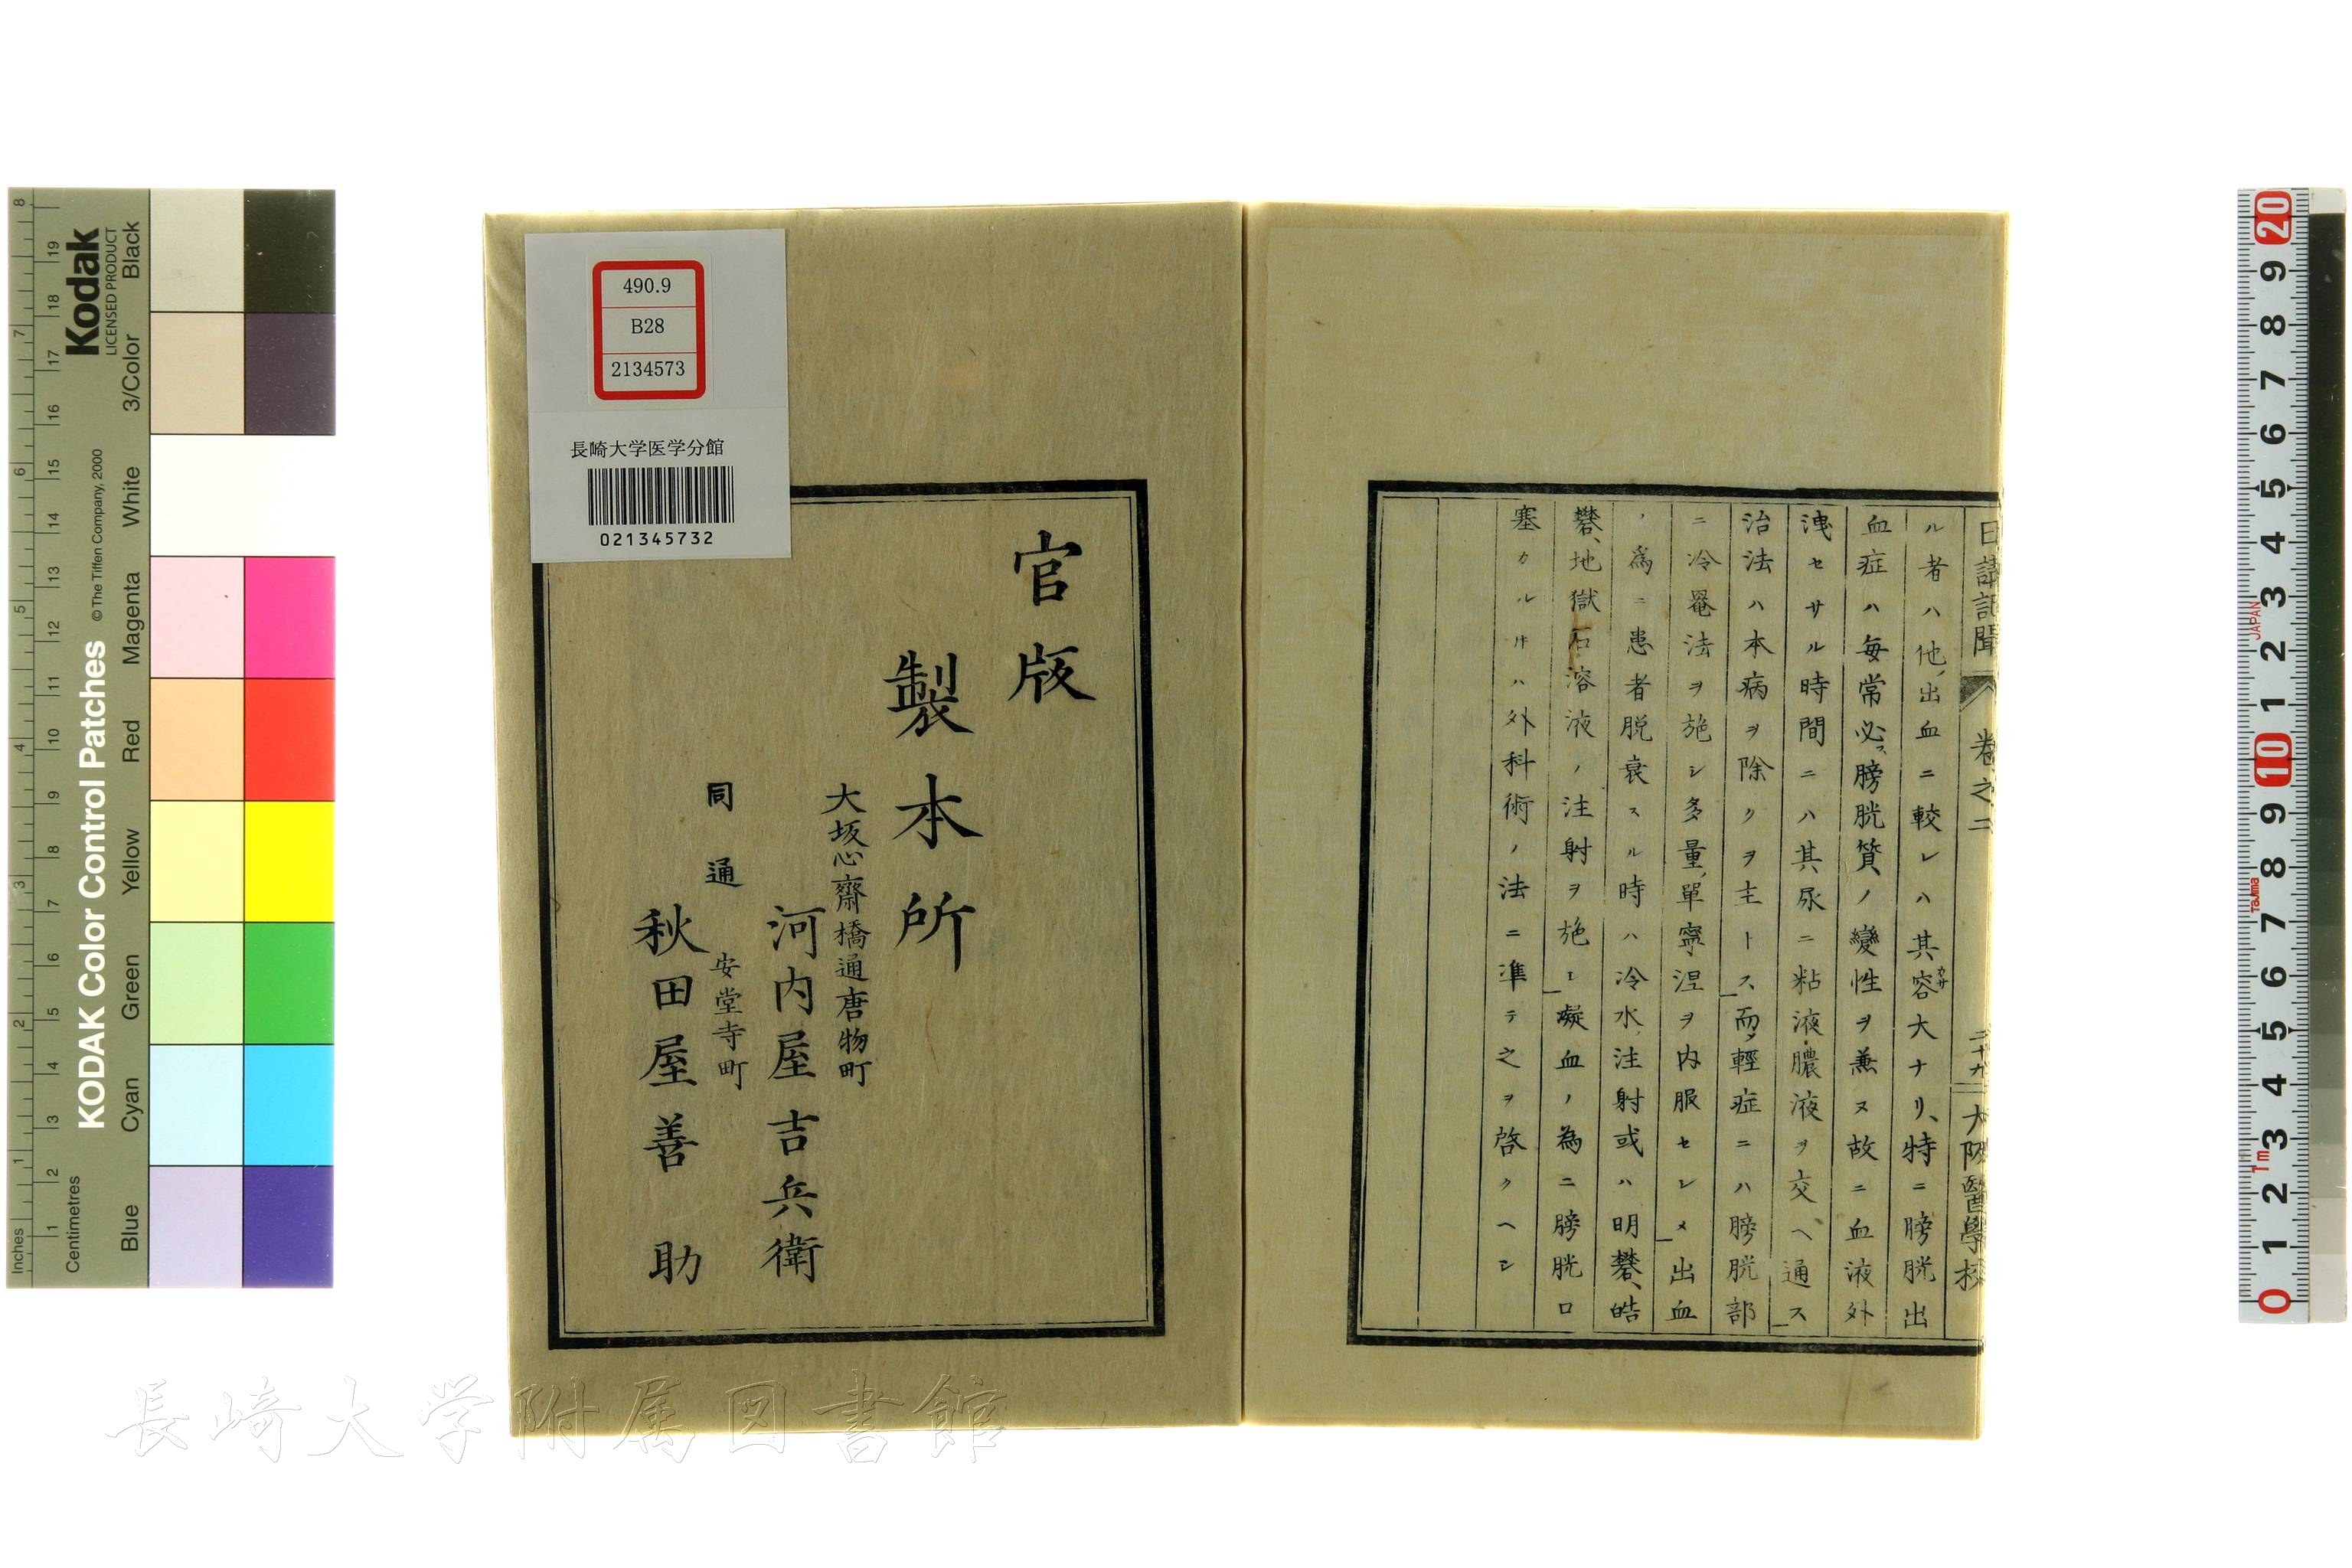 日講記聞 卷之二 二十九 大阪醫學校
ル者ハ他ノ出血ニ較レハ其容大ナリ、特ニ膀胱出
血症ハ每常必ス膀胱質ノ變性ヲ兼ヌ故ニ血液外
洩セサル時間ニハ其尿ニ粘液膿液ヲ交ヘ通ス
治法ハ本病ヲ除クヲ主トス而メ輕症ニハ膀胱部
ニ冷罨法ヲ施シ多量ノ單寧涅ヲ内服セシメ出血
ノ為ニ患者脱衰スル時ハ冷水ノ注射或ハ明礬、皓
礬、地獄石溶液ノ注射ヲ施シ凝血ノ為ニ膀胱口
塞カル片ハ外科術ノ法ニ準テ之ヲ啓クヘシ
官版
製本所
大坂心齋橋通唐物町
河内屋吉兵衛
同通 安堂寺町
秋田屋善助
490.9
B28
2134573
長崎大学医学分館
021345732
長崎大学附属図書館
Kodak
LICENSED PRODUCT
KODAK Color Control Patches
©The Tiffen Company, 2000
Blue Cyan Green Yellow Red Magenta White 3/Color Black
Inches 1 2 3 4 5 6 7 8
Centimetres 1 2 3 4 5 6 7 8 9 10 11 12 13 14 15 16 17 18 19
20 9 8 7 6 5 4 3 2 1 10 9 8 7 6 5 4 3 2 1 0
JAPAN
Tajima
1m